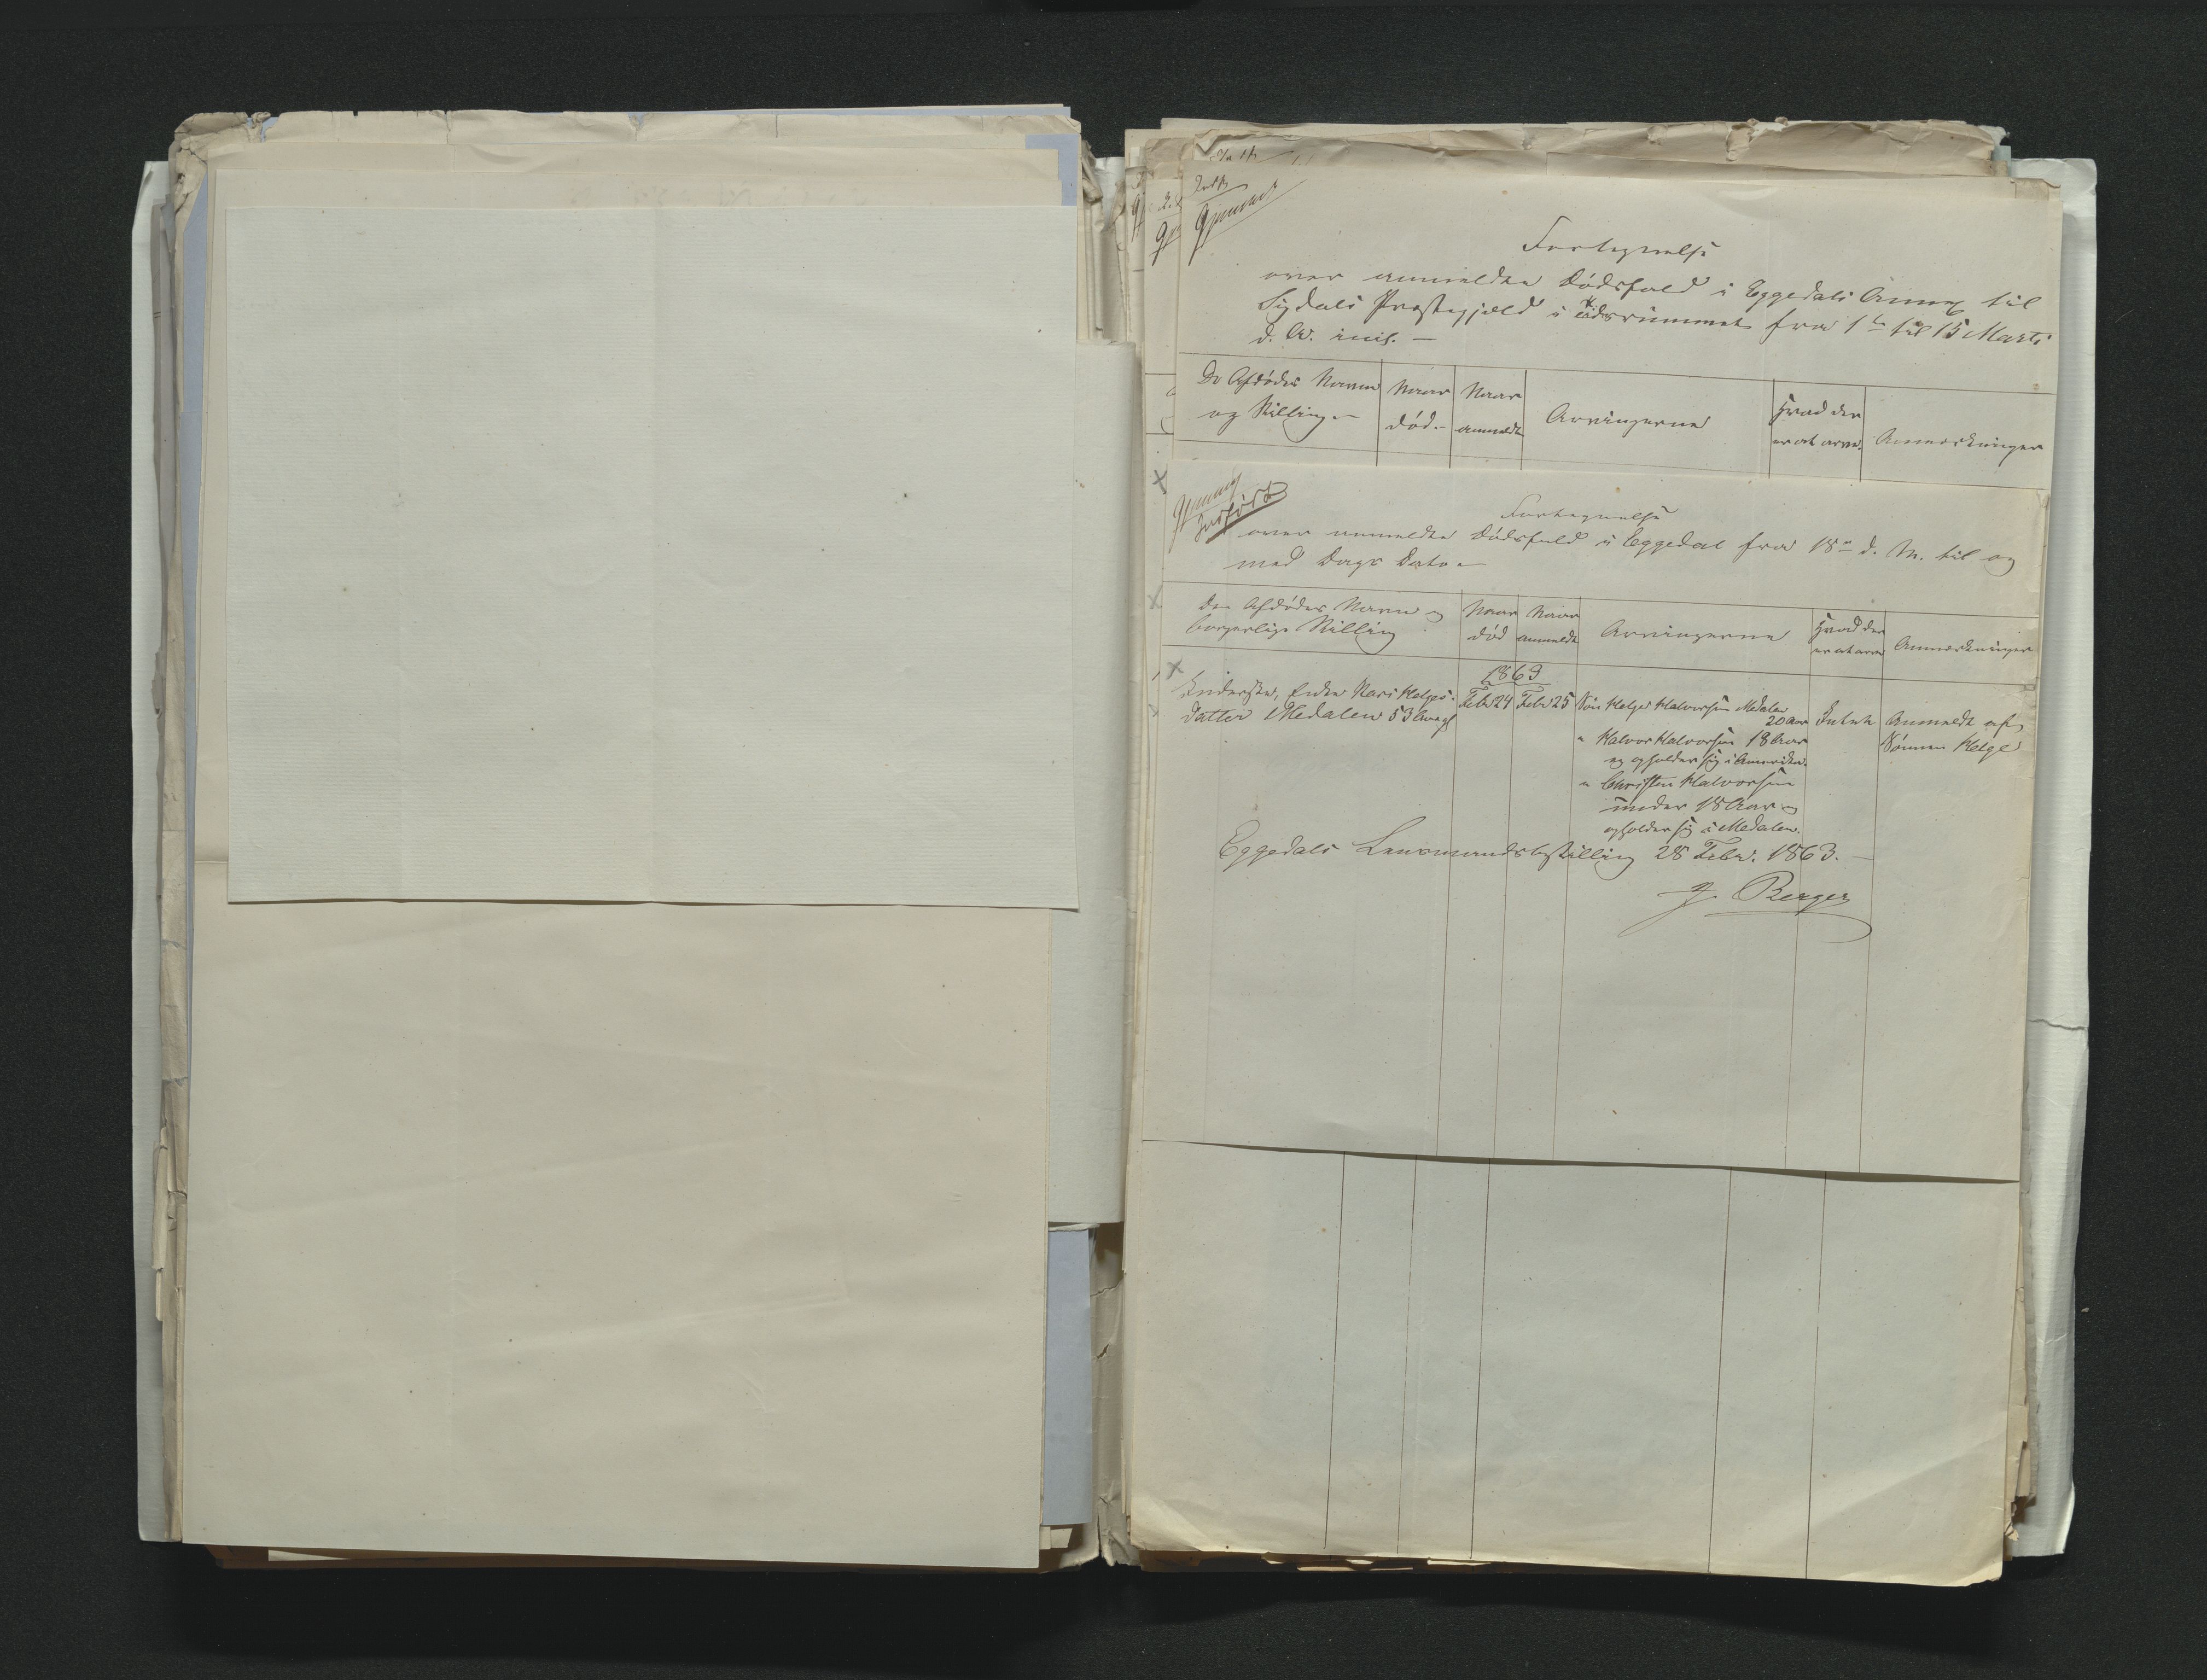 Indf
Gjennemg
Fortegnelse
over anmeldte Dødsfald i Eggedals Annex til
Sigdals Præstegjæld i Tidsrummet fra 1ste til 15 Marts
d. A. incl. —
De Afdødes Navne
og Stilling
Naar
død.
Naar
anmeldt
Arvingerne
Hvad der
er at arve.
Anmærkninger
Indført
Fortegnelse
over anmeldte Dødsfald i Eggedal fra 18de d. M. til og
med Dags Dato.
Den Afdødes Navn og
borgerlige Stilling
Naar
død
Naar
anmeldt
Arvingerne
Hvad der
er at arve
Anmærkninger
1863
Inderste, Enke Kari Helges-
datter Medalen 53 Aar gl
Febr 24
Febr 25
Søn Helge Halvorsen Medalen
20 Aar
" Halvor Halvorsen 18 Aar
og opholder sig i Amerika.
" Christen Halvorsen
under 18 Aar og
opholder sig i Medalen.
Intet
Anmeldt af
Sønnen Helge
Eggedals Lensmandsbestilling 28 Febr. 1863. —
J. Berger